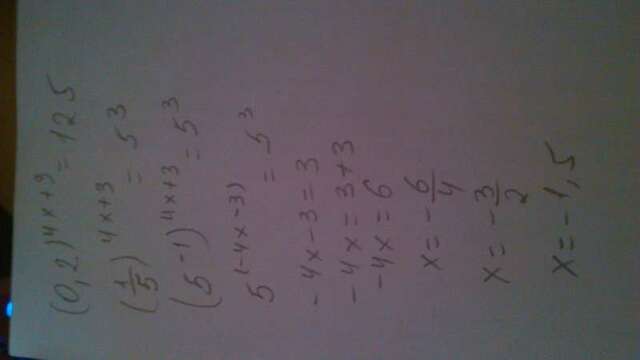 (0,2)^{4x+9} = 125
(\frac{1}{5})^{4x+3} = 5^3
(5^{-1})^{4x+3} = 5^3
5^{(-4x-3)} = 5^3
-4x-3=3
-4x=3+3
-4x=6
x=-\frac{6}{4}
x=-\frac{3}{2}
x=-1,5